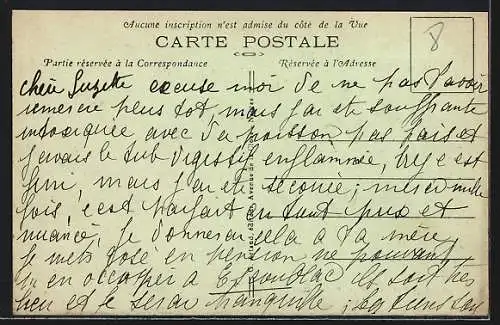 Aucune inscription n'est admise du côté de la Vue
CARTE POSTALE
Partie réservée à la Correspondance
Réservée à l'Adresse
8
chère Suzette excuse moi de ne pas t'avoir
remercié plus tot, mais j'ai été souffrante
intoxiquée avec du poisson pas frais et
j'avais le tub digestif enflammée, hier c'est
fini, mais j'ai été secouée; merci mille
fois, c'est parfait en tout prix et
nuance, je donnerai cela à ta mère
je mets en pension ne pouvant
m'en occuper à Escoublac ils sont très
bien et je serai tranquille;